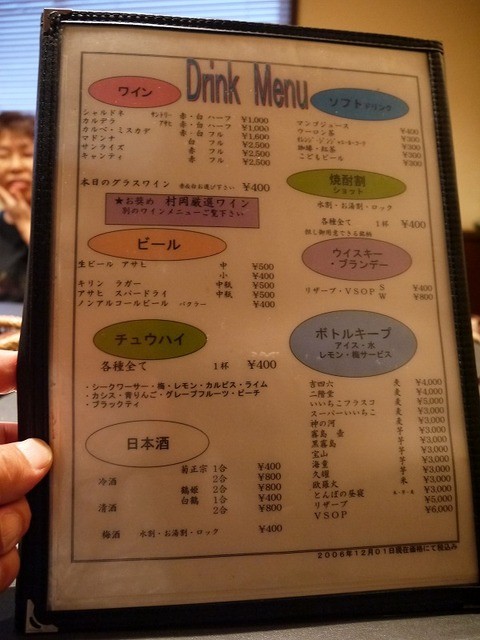 Drink Menu
ワイン
シャルドネ サントリー 赤・白 ハーフ ¥1,000
カルデラ アサヒ 赤・白 ハーフ ¥1,000
カルベ・ミスカデ 赤・白 フル ¥1,600
マドンナ 白 フル ¥2,500
サンライズ 赤 フル ¥2,500
キャンティ 赤 フル ¥2,500
本日のグラスワイン 赤白お選び下さい ¥400
★お奨め 村岡厳選ワイン
別のワインメニューご覧下さい
ビール
生ビール アサヒ 中 ¥500
小 ¥400
キリン ラガー 中瓶 ¥500
アサヒ スパードライ 中瓶 ¥500
ノンアルコールビール バクラー ¥400
チュウハイ
各種全て 1杯 ¥400
・シークワーサー・梅・レモン・カルピス・ライム
・カシス・青りんご・グレープフルーツ・ピーチ
・ブラックティ
日本酒
菊正宗 1合 ¥400
冷酒 2合 ¥800
鶴姫 2合 ¥800
白鶴 1合 ¥400
清酒 2合 ¥800
梅酒 水割・お湯割・ロック ¥400
ソフトドリンク
アップジュース
ウーロン茶 ¥400
¥300
珈琲・紅茶 ¥300
こどもビール ¥300
焼酎割
ショット
水割・お湯割・ロック
各種全て 1杯 ¥400
ウイスキー
・ブランデー
リザーブ・VSOP S ¥400
W ¥800
ボトルキープ
アイス・水
レモン・梅サービス
吉四六 麦 ¥4,000
二階堂 麦 ¥4,000
いいちこフラスコ 麦 ¥5,000
スーパーいいちこ 麦 ¥3,000
神の河 麦 ¥3,000
霧島 壺 芋
黒霧島 芋 ¥3,000
宝山 芋 ¥3,000
海童 芋 ¥3,000
久耀 芋 ¥3,000
欧羅火 米 ¥3,000
とんぼの昼寝 ¥3,000
リザーブ ¥5,000
VSOP ¥6,000
2006年12月01日現在価格にて税込み